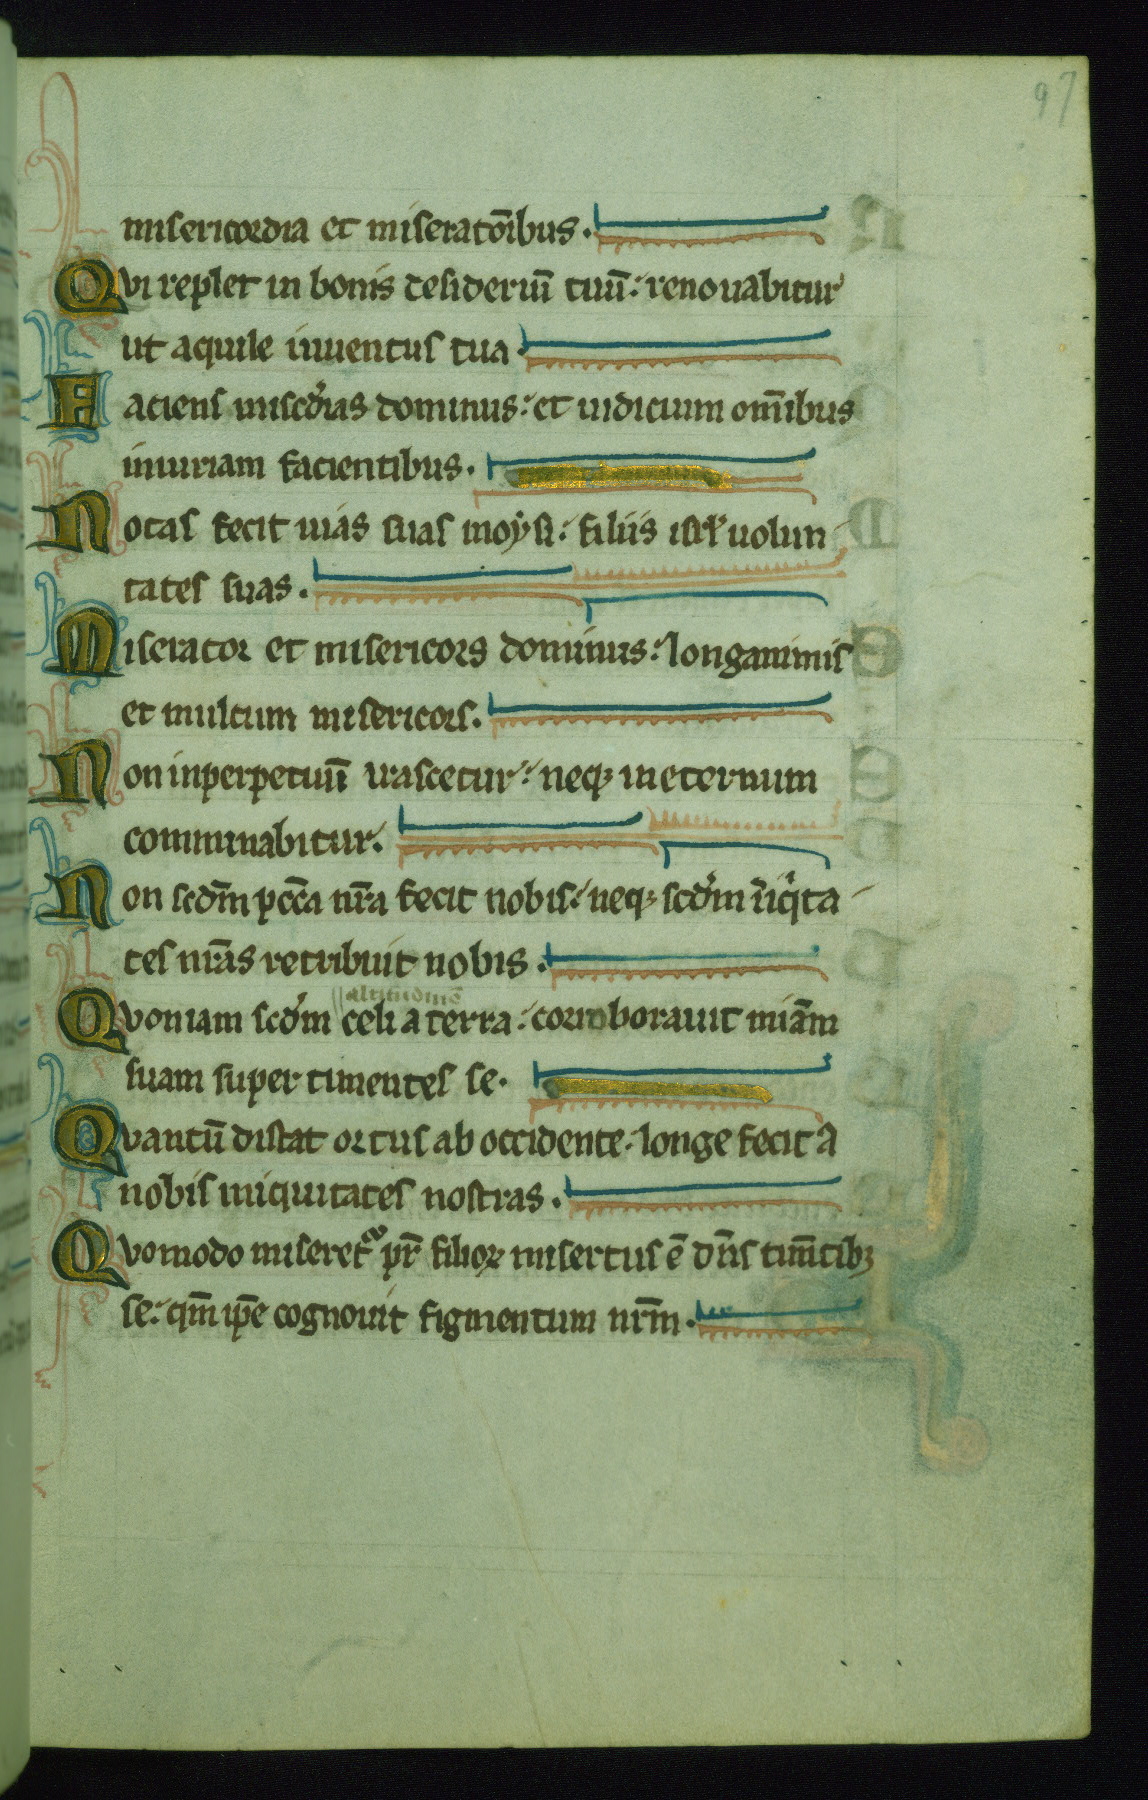 97
misericordia et miseratōibus.
Qui replet in bonis desideriū tuū: renouabitur
ut aquile iuuentus tua.
Faciens miscd̓ias dominus: et iudicium om̄ibus
iniuriam facientibus.
Notas fecit uias suas moysi: filiis isrl̓ uolun
tates suas.
Miserator et misericors dominus: longanimis
et multum misericors.
Non inperpetuū irascetur: neq; ineternum
comminabitur.
Non scd̄m pcc̄a nr̄a fecit nobis: neq; scd̓m iiq̓ta
tes nr̄as retribuit nobis.
altitudinē
Quoniam scd̓m celi a terra: corroborauit miām
suam super timentes se.
Quantū distat ortus ab occidente: longe fecit a
nobis iniquitates nostras.
Quomodo miseret᷑ pr̄ filioꝝ misertus ē dn̄s tim̄tib;
se: qm̄ ip̄e cognouit figmentum nr̄m.